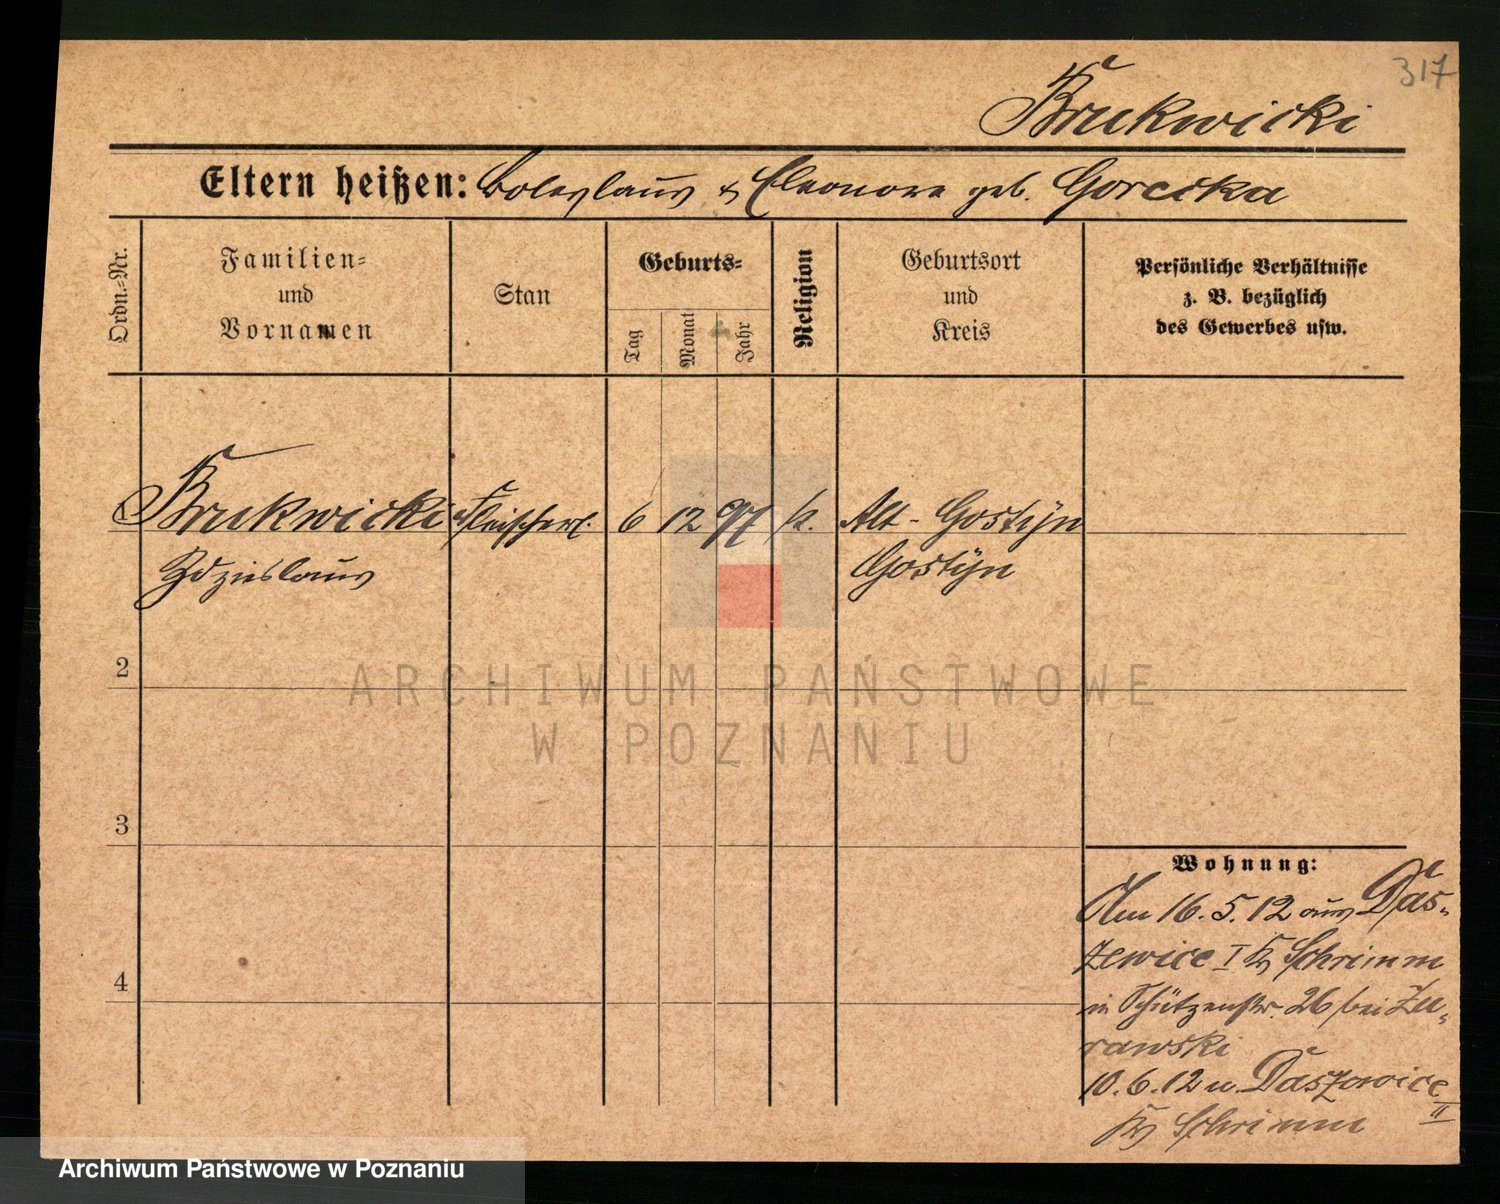 317
Brukwicki
Eltern heißen: Boleslaus & Eleonore geb. Gorecka
Ordn.-Nr.
Familien-
und
Vornamen
Stan
Geburts-
Tag
Monat
Jahr
Religion
Geburtsort
und
Kreis
Persönliche Verhältnisse
z. B. bezüglich
des Gewerbes usw.
Brukwicki Fleischerl. 6 12 97 k. Alt-Gostyn
Zdzieslaus Gostyn
2
ARCHIWUM PAŃSTWOWE
W POZNANIU
3
Wohnung:
Am 16.5.12 aus Das-
zewice I Kr Schrimm
4
in Schützenstr. 26 bei Zu-
rawski
10.6.12 n. Daszewice II
Kr Schrimm
Archiwum Państwowe w Poznaniu